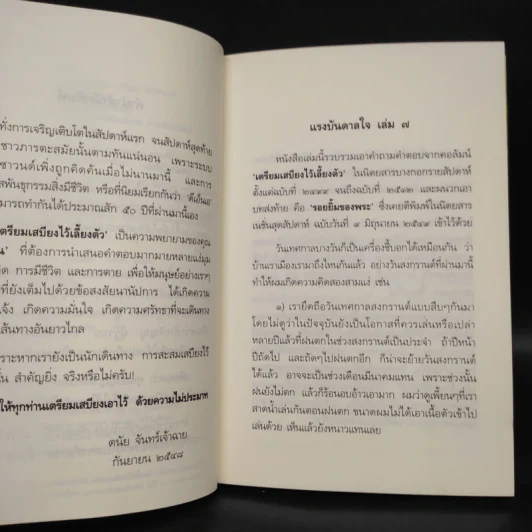 ทั่งการเจริญเติบโตในสัปดาห์แรก จนสัปดาห์สุดท้าย
ชาวภารตะสมัยนั้นตามทันแน่นอน เพราะระบบ
ซาวนด์เพิ่งถูกคิดค้นเมื่อไม่นานมานี้ และการ
สพันธุกรรมสิ่งมีชีวิต หรือที่นิยมเรียกกันว่า 'ดีเอ็นเอ'
มารถทำกันได้ประมาณสัก ๕๐ ปีที่ผ่านมานี้เอง
ตรียมเสบียงไว้เลี้ยงตัว' เป็นความพยายามของคุณ
ที่ต้องการนำเสนอคำตอบมากมายหลายแง่มุม
กิด การมีชีวิต และการตาย เพื่อให้มนุษย์อย่างเราๆ
ที่ยังเต็มไปด้วยข้อสงสัยนานัปการ ได้เกิดความ
แจ้ง เกิดความมั่นใจ เกิดความศรัทธาที่จะเดินทาง
เส้นทางอันยาวไกล
ราะหากเรายังเป็นนักเดินทาง การสะสมเสบียงไว้
สำคัญยิ่ง จริงหรือไม่ครับ!
ให้ทุกท่านเตรียมเสบียงเอาไว้ ด้วยความไม่ประมาท
ดนัย จันทร์เจ้าฉาย
กันยายน ๒๕๔๘
แรงบันดาลใจ เล่ม ๗
หนังสือเล่มนี้รวบรวมเอาคำถามคำตอบจากคอลัมน์
'เตรียมเสบียงไว้เลี้ยงตัว' ในนิตยสารบางกอกรายสัปดาห์
ตั้งแต่ฉบับที่ ๒๔๙๙ จนถึงฉบับที่ ๒๕๑๒ และผนวกเอา
บทส่งท้าย คือ 'รอยยิ้มของพระ' ซึ่งเคยตีพิมพ์ในนิตยสาร
เนชั่นสุดสัปดาห์ ฉบับวันที่ ๙ มิถุนายน ๒๕๔๗ เข้าไว้ด้วย
วันเทศกาลบางวันก็เป็นเครื่องชี้บอกได้เหมือนกัน ว่า
บ้านเราเมืองเรามาถึงไหนกันแล้ว อย่างวันสงกรานต์ที่ผ่านมานี้
ทำให้ผมเกิดความคิดสองสามแง่ เช่น
๑) เรายึดถือวันเทศกาลสงกรานต์แบบสืบๆกันมา
โดยไม่ดูว่าในปัจจุบันยังเป็นโอกาสที่ควรเล่นหรือเปล่า
หลายปีแล้วที่ฝนตกในช่วงสงกรานต์เป็นประจำ ถ้าปีหน้า
ปีถัดไป และถัดๆไปฝนตกอีก ก็น่าจะย้ายวันสงกรานต์
ได้แล้ว อาจจะเป็นช่วงเดือนมีนาคมแทน เพราะช่วงนั้น
ฝนยังไม่ตก แล้วก็ร้อนอบอ้าวเอามาก ผมว่าดูเพี้ยนๆที่เรา
สาดน้ำเล่นกันตอนฝนตก ขนาดผมไม่ได้เอาเนื้อตัวเข้าไป
เล่นด้วย เห็นแล้วยังหนาวแทนเลย